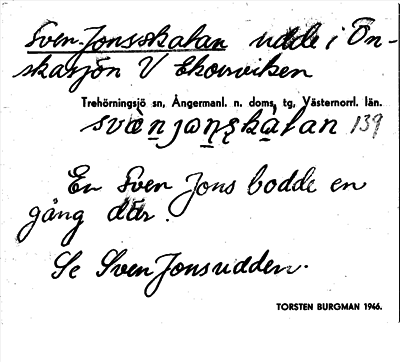 Sven-Jonsskatan udde i Ön-
skasjön V Ekorrviken
Trehörningsjö sn, Ångermanl. n. doms. tg, Västernorrl. län.
139
En Sven Jons bodde en
gång där.
Se Sven Jonsudden.
TORSTEN BURGMAN 1946.